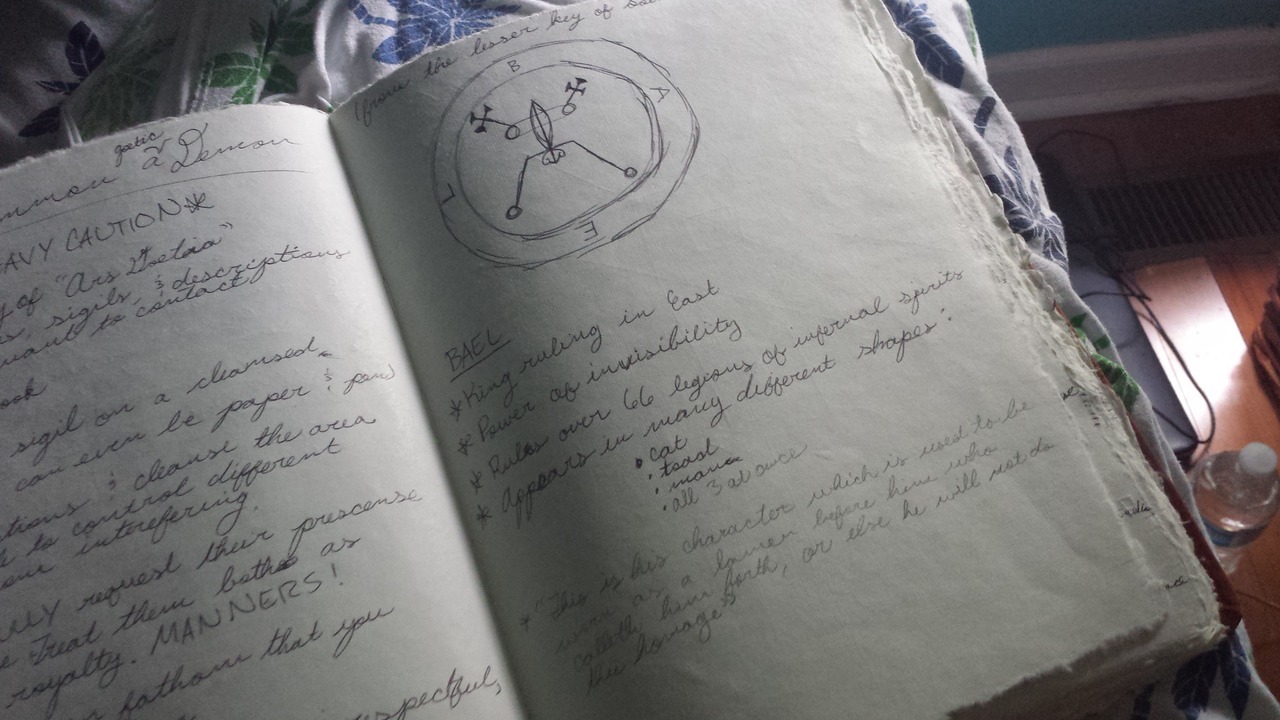 goetic
mmon a Demon
AVY CAUTION*
y of "Ars Goetia"
s, sigils, & descriptions
want to contact
ook
sigil on a cleansed
can even be paper & pen)
tions & cleanse the area
to control different
interefering.
LLY request their prescense
e Treat them both as
royalty. MANNERS!
fathom that you
espectful,
(from the lesser key of
B
A
E
L
BAEL
* King ruling in East
* Power of invisibility
* Rules over 66 legions of infernal spirits
* Appears in many different shapes:
• cat
• toad
• man
• all 3 at once
* "This is his character which is used to be
worn as a lamen before him who
calleth him forth, or else he will not do
thee homage"